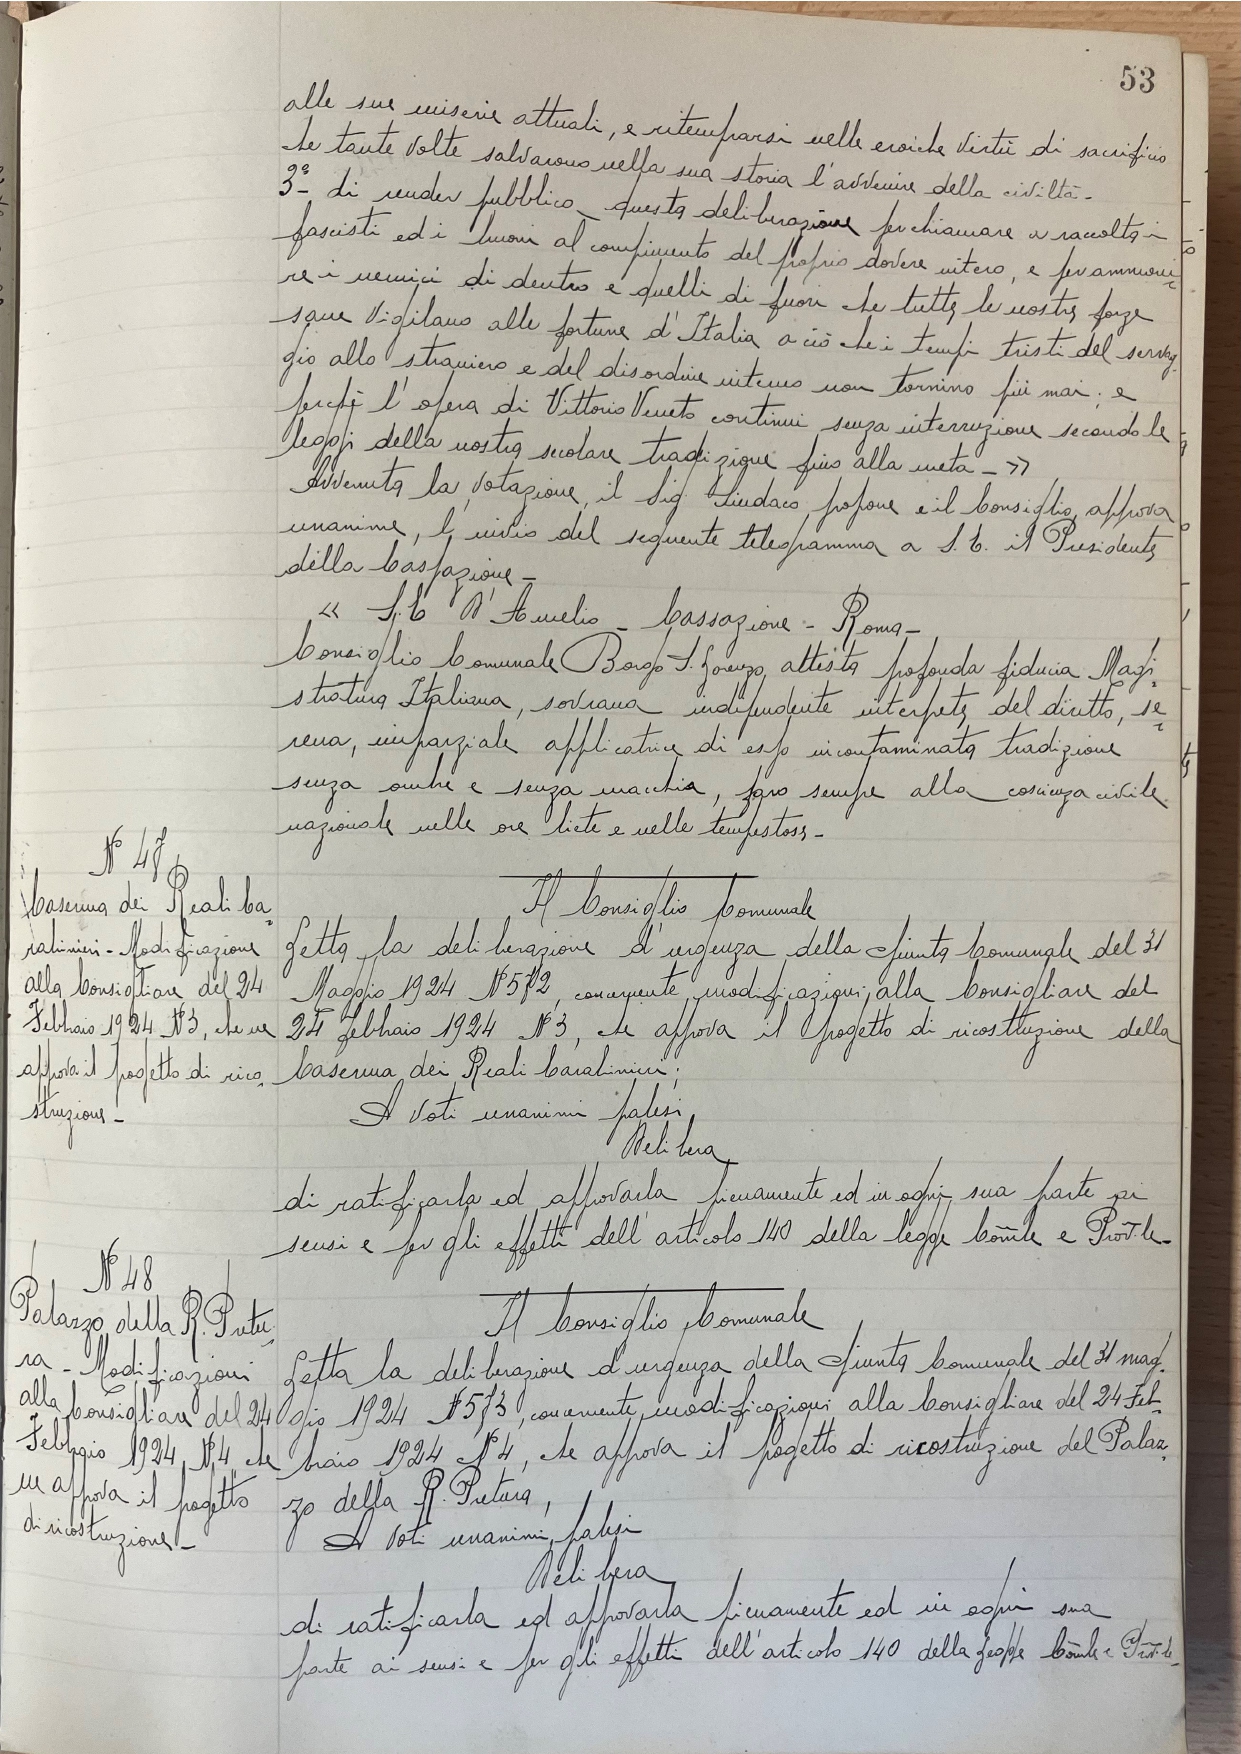 53
alle sue miserie attuali, e ritemprarsi nelle eroiche virtù di sacrificio
che tante volte salvarono nella sua storia l'avvenire della civiltà-
3º- di render pubblica questa deliberazione per chiamare a raccolta i
fascisti ed i buoni al compimento del proprio dovere intero, e per ammoni=
re i nemici di dentro e quelli di fuori che tutte le nostre forze
sane vigilano alle fortune d'Italia a ciò che i tempi tristi del servag-
gio allo straniero e del disordine interno non tornino più mai; e
perchè l'opera di Vittorio Veneto continui senza interruzione secondo le
leggi della nostra secolare tradizione fino alla meta - »
Avvenuta la votazione, il Sig. Sindaco, propone e il Consiglio, approva
unanime, l'invio del seguente telegramma a S. E. il Presidente
della Cassazione -
« S. E D'Amelio - Cassazione - Roma -
Consiglio Comunale Borgo S. Lorenzo, attesta profonda fiducia Magi=
stratura Italiana, sovrana indipendente interprete del diritto, se=
rena, imparziale applicatrice di esso incontaminata tradizione
senza ombre e senza macchia, faro sempre alla coscienza civile
nazionale nelle ore liete e nelle tempestose -
N 47
Caserma dei Reali Ca=
rabinieri - Modificazione
alla Consigliare del 24
Febbraio 1924 N 3, che ne
approva il progetto di rico=
struzione -
Il Consiglio Comunale
Letta la deliberazione d'urgenza della Giunta Comunale del 31
Maggio 1924 N 572, concernente modificazioni alla Consigliare del
24 febbraio 1924 N 3, che approva il progetto di ricostruzione della
Caserma dei Reali Carabinieri;
A voti unanimi palesi,
Delibera
di ratificarla ed approvarla pienamente ed in ogni sua parte ai
sensi e per gli effetti dell'articolo 140 della legge Com̃le e Prov̄le -
N 48
Palazzo della R. Pretu=
ra - Modificazioni
alla Consigliare del 24
Febbraio 1924 N 4, che
ne approva il progetto
di ricostruzione -
Il Consiglio Comunale
Letta la deliberazione d'urgenza della Giunta Comunale del 31 mag-
gio 1924 N 573, concernente modificazioni alla Consigliare del 24 Feb-
braio 1924 N 4, che approva il progetto di ricostruzione del Palaz=
zo della R. Pretura,
A voti unanimi, palesi
Delibera
di ratificarla ed approvarla pienamente ed in ogni sua
parte ai sensi e per gli effetti dell'articolo 140 della Legge Com̃le e Prov̄.le -